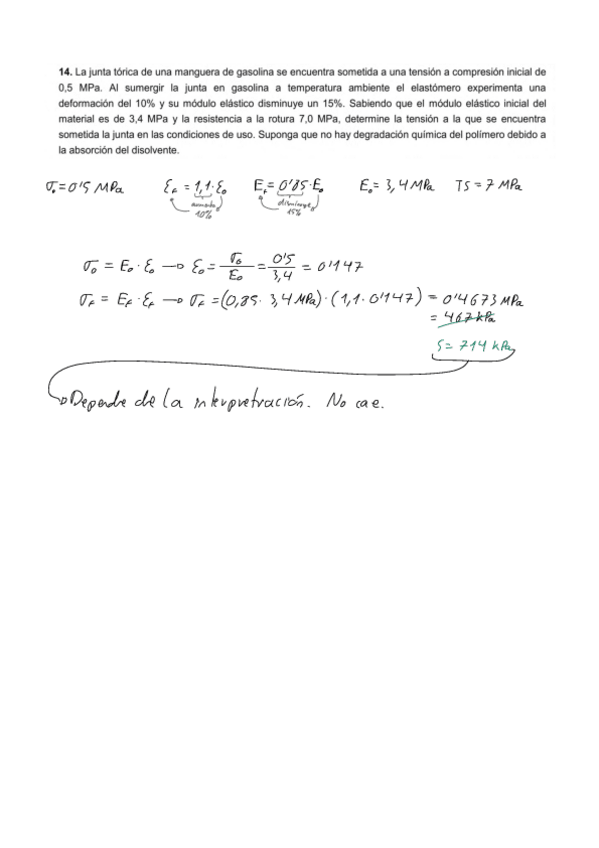 14. La junta tórica de una manguera de gasolina se encuentra sometida a una tensión a compresión inicial de
0,5 MPa. Al sumergir la junta en gasolina a temperatura ambiente el elastómero experimenta una
deformación del 10% y su módulo elástico disminuye un 15%. Sabiendo que el módulo elástico inicial del
material es de 3,4 MPa y la resistencia a la rotura 7,0 MPa, determine la tensión a la que se encuentra
sometida la junta en las condiciones de uso. Suponga que no hay degradación química del polímero debido a
la absorción del disolvente.
σ₀ = 0'5 MPa   ε_f = 1,1·ε₀   E_f = 0'85·E₀   E₀ = 3,4 MPa   TS = 7 MPa
aumenta   disminuye
10%   15%
σ₀ = E₀·ε₀ → ε₀ = σ₀/E₀ = 0'5/3,4 = 0'147
σ_f = E_f·ε_f → σ_f = (0,85·3,4 MPa)·(1,1·0'147) = 0'4673 MPa
= 467 kPa
S = 714 kPa
Depende de la interpretración. No cae.